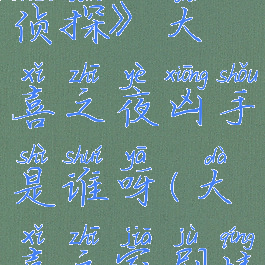 侦探》大
xǐ zhī yè xiōng shǒu
喜之夜凶手
shì shuí yā dà
是谁呀(大
xǐ zhī jiā jù qíng
喜之家剧情